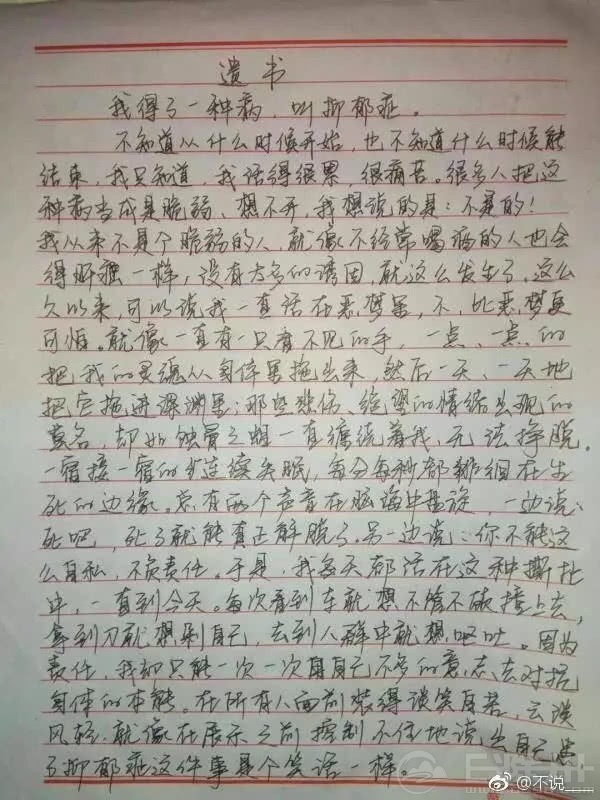 遗书
我得了一种病,叫抑郁症。
不知道从什么时候开始,也不知道什么时候能
结束,我只知道,我活得很累,很痛苦。很多人把这
种病当成是脆弱、想不开,我想说的是:不是的!
我从来不是个脆弱的人,就像不经常喝酒的人也会
得肝癌一样,没有太多的诱因,就这么发生了,这么
久以来,可以说我一直活在恶梦里,不,比恶梦更
可怕。就像一直有一只看不见的手,一点、一点的
把我的灵魂从身体里拖出来,然后一天、一天地
把它拖进深渊里;那些悲伤、绝望的情绪出现的
莫名,却如蚀骨之蛆一直缠绕着我,无法挣脱。
一宿接一宿的连续失眠,每分每秒都徘徊在生
死的边缘。总有两个声音在脑海中盘旋,一边说:
死吧,死了就能真正解脱了。另一边说:你不能这
么自私,不负责任。于是,我每天都活在这种撕扯
中,一直到今天。每次看到车就想不管不顾撞上去,
拿到刀就想刺自己,去到人群中就想呕吐。因为
责任,我却只能一次一次用自己不多的意志去对抗
身体的本能。在所有人面前装得谈笑自若,云淡
风轻,就像在展示之前控制不住地说出自己患
了抑郁症这件事是个笑话一样。
@不说__